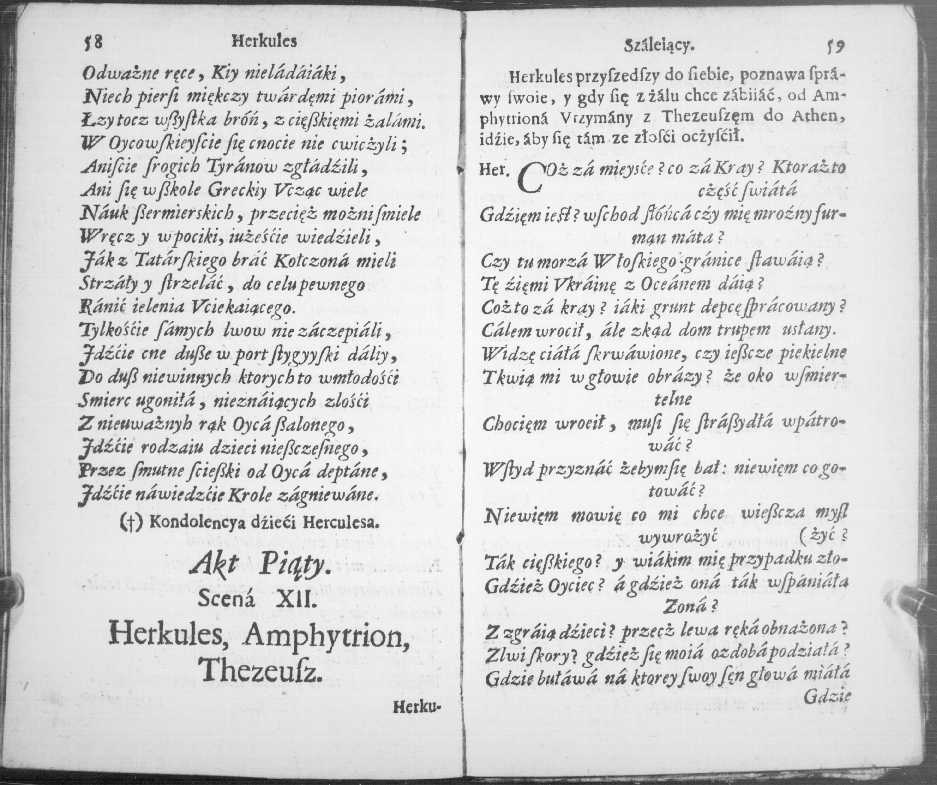 58 Herkules
Odważne ręce, Kiy nieládáiáki,
Niech pierſi miękczy twárdęmi piorámi,
Łzy tocz wßyſtka bróń, z cięßkięmi żalámi.
W Oycowſkieyſcie ſię cnocie nie cwicżyli;
Aniſcie ſrogich Tyránow zgłádźili,
Ani ſię w ßkole Greckiy Vcząc wiele
Náuk ßermierskich, przecięż możni ſmiele
Wręcz y w pociki, iużeśćie wiedźieli,
Ják z Tatárſkiego bráć Kołczoná mieli
Strzáły y ſtrzeláć, do celu pewnego
Ránić ielenia Vciekaiącego.
Tylkośćie ſámych lwow nie záczepiáli,
Jdźćie cne duße w port ſtygyyſki dáliy,
Do duß niewinnych ktorych to w młodośći
Smierc ugoniłá, nieznáiących złośći
Z nieuważnyh rąk Oycá ßalonego,
Jdźćie rodzaiu dzieci nießczeſnego,
Przez ſmutne ſcießki od Oycá deptáne,
Jdźćie náwiedzćie Krole zágniewáne.
(†) Kondolencya dźieći Herculesa.
Akt Piąty.
Scená XII.
Herkules, Amphytrion,
Thezeuſz.
Herku-
Száleiący. 59
Herkules przyſzedſzy do ſiebie, poznawa ſprá-
wy ſwoie, y gdy ſię z żálu chce zábiiáć, od Am-
phytrioná Vtrzymány z Thezeuſzęm do Athen,
idźie, áby ſię tám ze złośći oczyśćił.
Her. COż zá mieyśće? co zá Kray? Ktoraż to
część ſwiátá
Gdźięm ieſt? wſchod ſłóńcá czy mię mroźny fur-
man máta?
Czy tu morzá Włoſkiego gránice ſtawáią?
Tę źięmi Vkráinę z Oceánem dáią?
Coż to zá kray? iáki grunt depcę ſprácowany?
Cálem wrocił, ále zkąd dom trupem usłany.
Widzę ciáłá ſkrwáwione, czy ießcze piekielne
Tkwią mi w głowie obrázy? że oko wſmier-
telne
Chocięm wrocił, muśi ſię ſtráßydłá wpátro-
wáć?
Wſtyd przyznáć żebym ſię bał: niewięm co go-
towáć?
Niewięm mowię co mi chce wießcza myſl
wywrożyć (żyć?
Ták cięßkiego? y w iákim mię przypadku zło-
Gdźież Oyciec? á gdźież oná ták wſpániáła
Zoná?
Z zgráią dźieci? przecż lewa ręká obnażona?
Z lwi ſkory? gdźież ſię moiá ozdobá podziałá?
Gdzie buławá ná ktorey ſwoy ſęn głowá miáłá
Gdzie